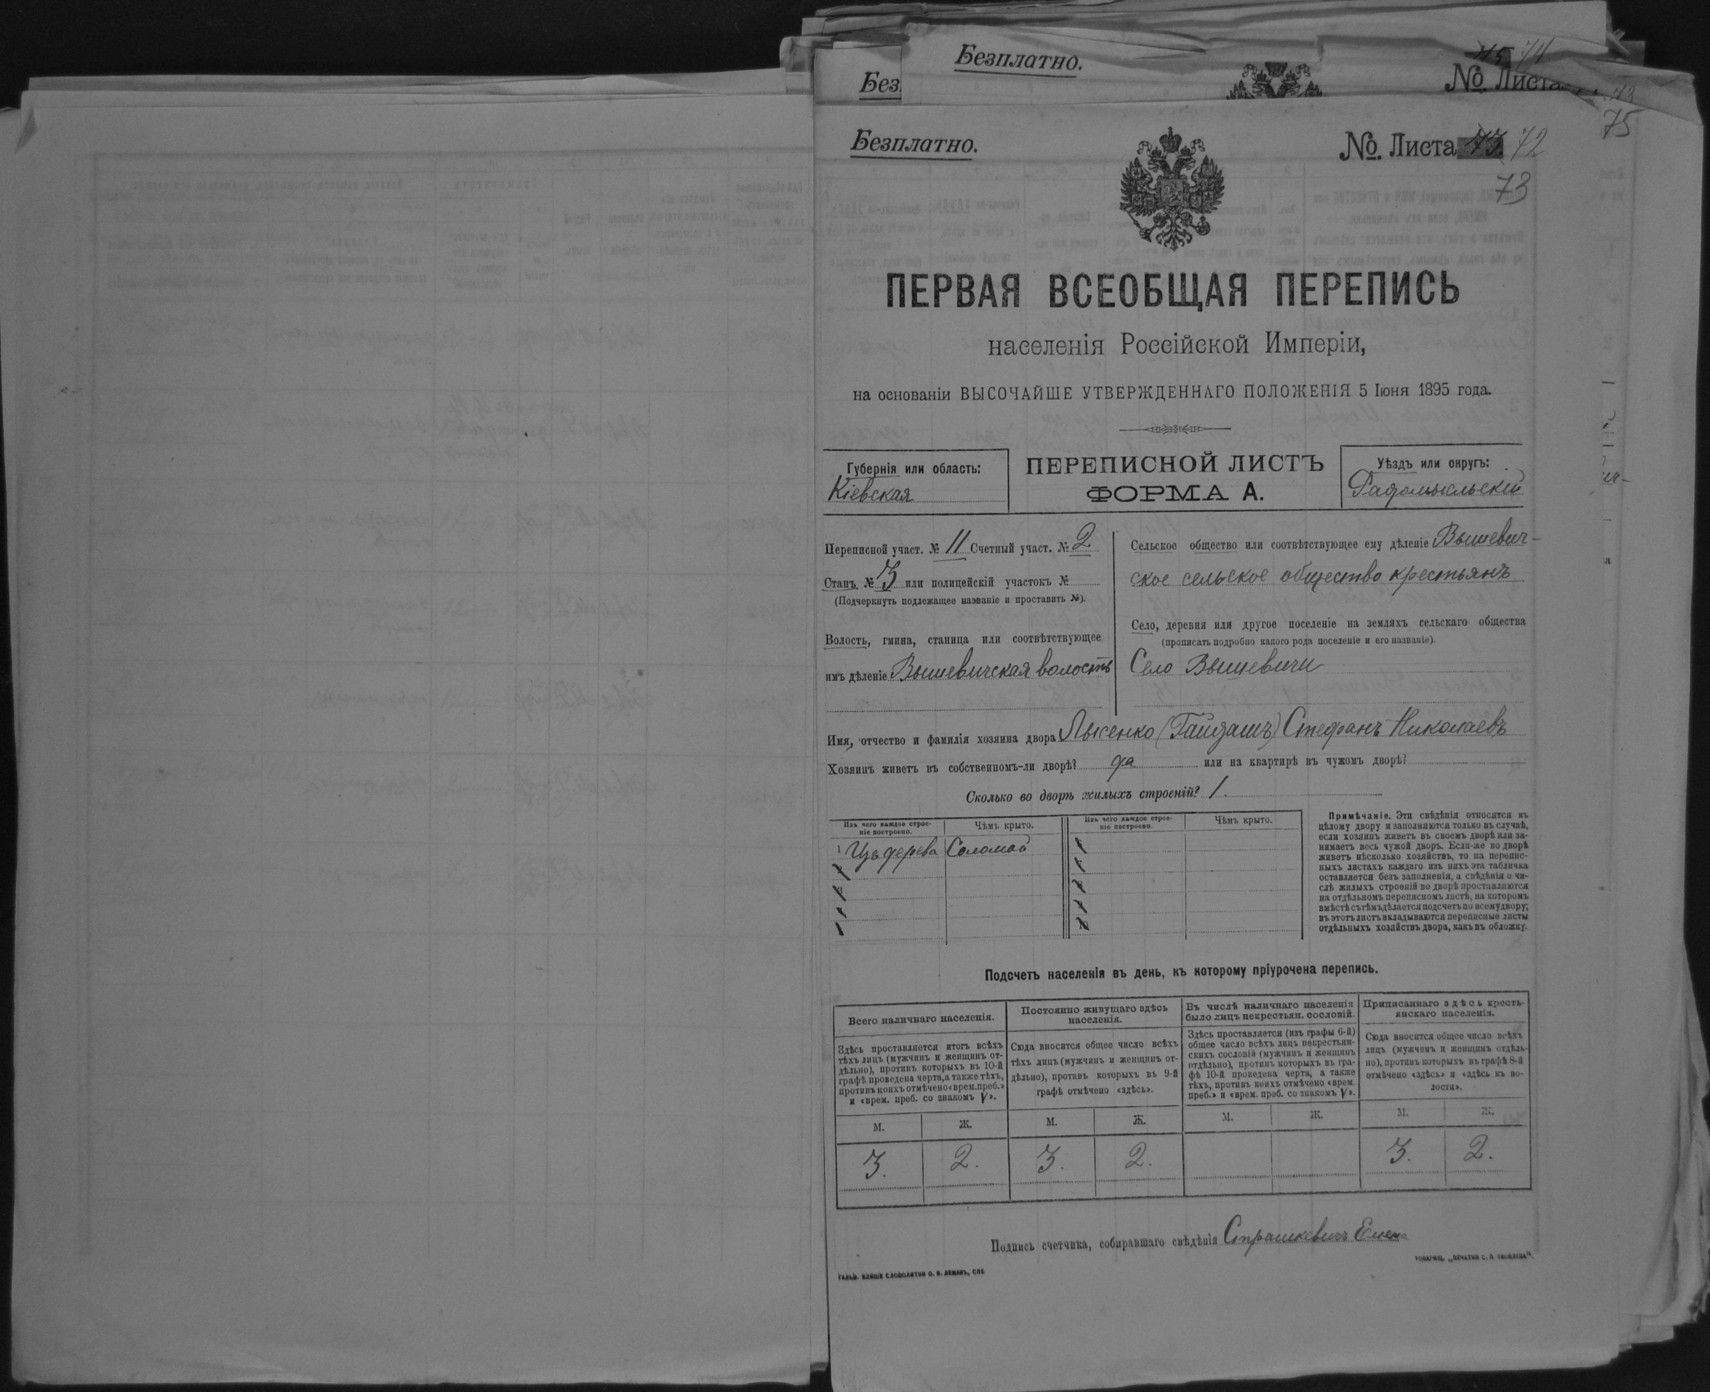 Безплатно.
Без
№ Листа
Безплатно.
№. Листа 72
73
75
ПЕРВАЯ ВСЕОБЩАЯ ПЕРЕПИСЬ
населенія Россійской Имперіи,
на основаніи ВЫСОЧАЙШЕ УТВЕРЖДЕННАГО ПОЛОЖЕНІЯ 5 Іюня 1895 года.
Губернія или область:
Кіевская
ПЕРЕПИСНОЙ ЛИСТЪ
ФОРМА А.
Уѣздъ или округъ:
Радомысльскій
Переписной участ. № 11 Счетный участ. № 2
Станъ № 3 или полицейскій участокъ №
(Подчеркнуть подлежащее названіе и проставить №).
Волость, гмина, станица или соотвѣтствующее
имъ дѣленіе Вышевичская волость
Сельское общество или соотвѣтствующее ему дѣленіе Вышевич-
ское сельское общество крестьянъ
Село, деревня или другое поселеніе на земляхъ сельскаго общества
(прописать подробно какого рода поселеніе и его названіе).
Село Вышевичи
Имя, отчество и фамилія хозяина двора Лысенко (Гайдашъ) Стефанъ Николаевъ
Хозяинъ живетъ въ собственномъ-ли дворѣ? да или на квартирѣ въ чужомъ дворѣ?
Сколько во дворѣ жилыхъ строеній? 1.
Изъ чего каждое строе-
ніе построено.
Чѣмъ крыто.
Изъ чего каждое строе-
ніе построено.
Чѣмъ крыто.
1 Изъ дерева Соломой
Примѣчаніе. Эти свѣдѣнія относятся къ
цѣлому двору и заполняются только въ случаѣ,
если хозяинъ живетъ въ своемъ дворѣ или за-
нимаетъ весь чужой дворъ. Если-же во дворѣ
живетъ нѣсколько хозяйствъ, то на перепис-
ныхъ листахъ каждаго изъ нихъ эта табличка
оставляется безъ заполненія, а свѣдѣнія о чи-
слѣ жилыхъ строеній во дворѣ проставляются
на отдѣльномъ переписномъ листѣ, на которомъ
вмѣстѣ съ тѣмъ дѣлается подсчетъ по всему двору;
въ этотъ листъ вкладываются переписные листы
отдѣльныхъ хозяйствъ двора, какъ въ обложку.
Подсчетъ населенія въ день, къ которому пріурочена перепись.
Всего наличнаго населенія.
Здѣсь проставляется итогъ всѣхъ
тѣхъ лицъ (мужчинъ и женщинъ от-
дѣльно), противъ которыхъ въ 10-й
графѣ проведена черта, а также тѣхъ,
противъ коихъ отмѣчено «врем. преб.»
и «врем. преб. со знакомъ V».
Постоянно живущаго здѣсь
населенія.
Сюда вносится общее число всѣхъ
тѣхъ лицъ (мужчинъ и женщинъ от-
дѣльно), противъ которыхъ въ 9-й
графѣ отмѣчено «здѣсь».
Въ числѣ наличнаго населенія
было лицъ некрестьян. сословій.
Здѣсь проставляется (изъ графы 6-й)
общее число всѣхъ лицъ некрестьян-
скихъ сословій (мужчинъ и женщинъ
отдѣльно), противъ которыхъ въ гра-
фѣ 10-й проведена черта, а также
тѣхъ, противъ коихъ отмѣчено «врем.
преб.» и «врем. преб. со знакомъ V».
Приписаннаго здѣсь кресть-
янскаго населенія.
Сюда вносится общее число всѣхъ
лицъ (мужчинъ и женщинъ отдѣль-
но), противъ которыхъ въ графѣ 8-й
отмѣчено «здѣсь» и «здѣсь въ во-
лости».
М. Ж. М. Ж. М. Ж. М. Ж.
3. 2. 3. 2. 3. 2.
Подпись счетчика, собиравшаго свѣдѣнія Страшкевичъ